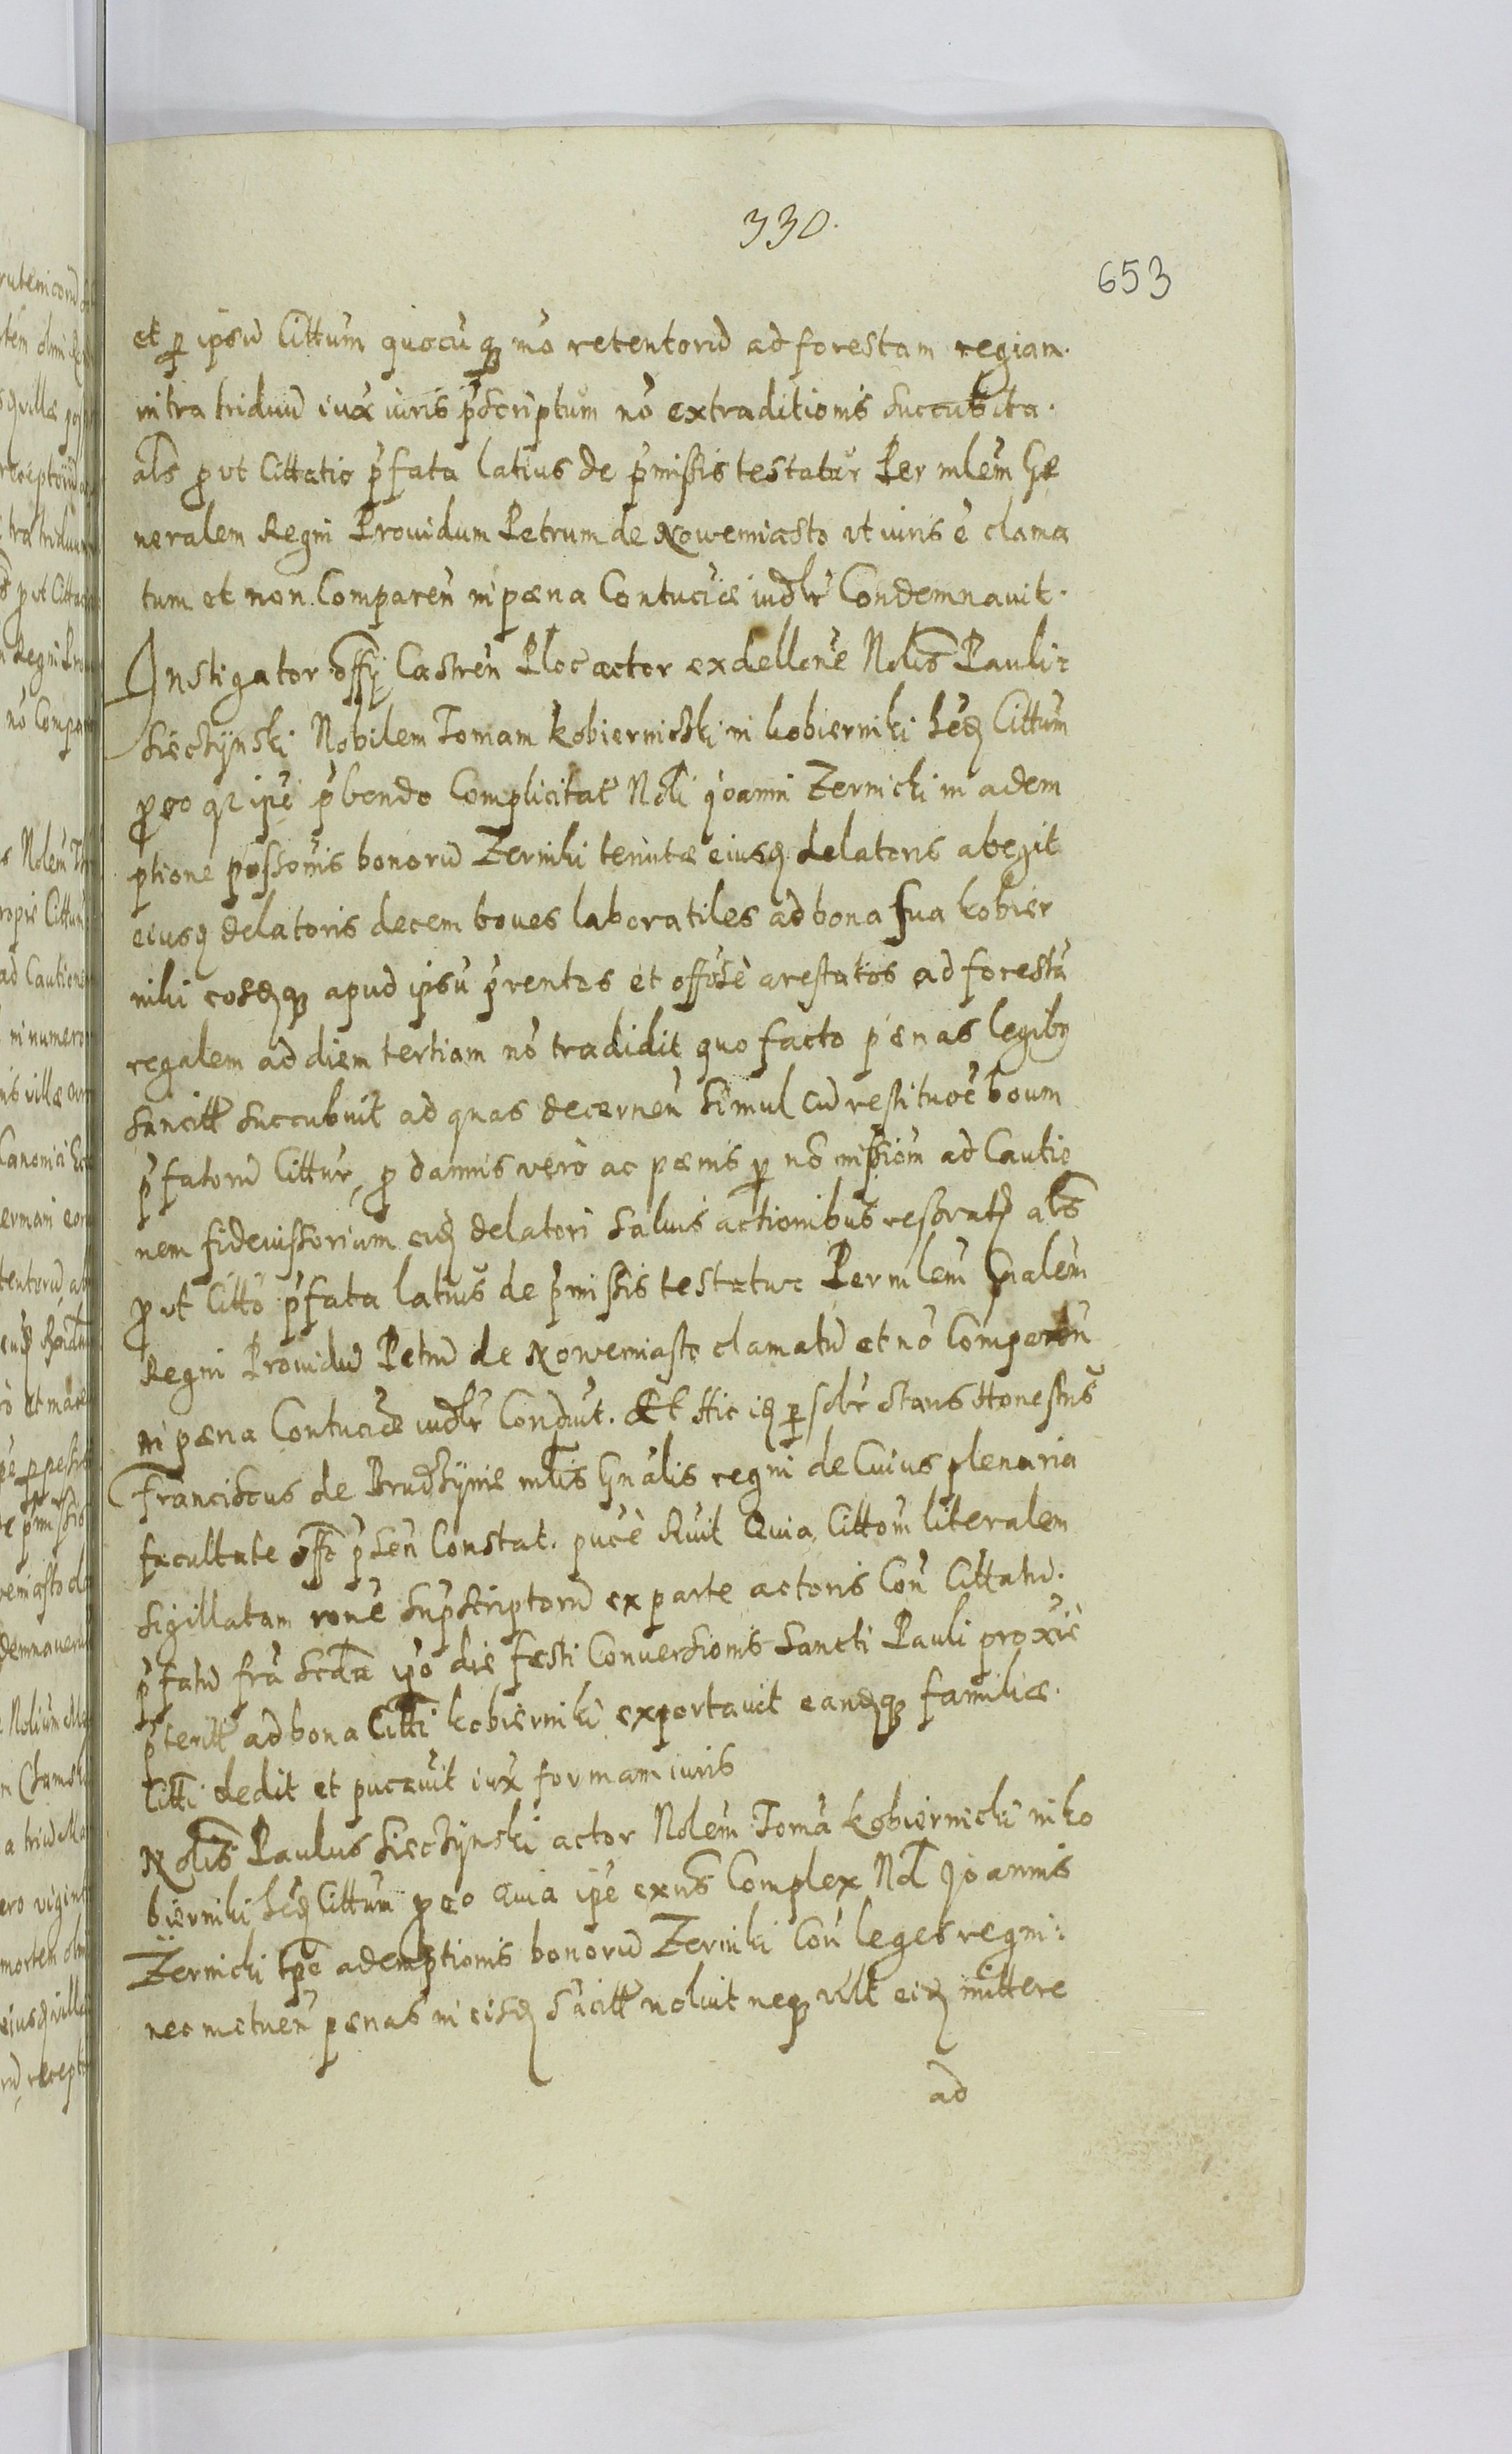 330.
653
et p ipsũ Cittum quocũq mõ retentorũ ad forestam regiam.
intra triduũ iux iuris pscriptum nõ extraditionis succubita.
als put Cittatio pfata latius de pmissis testatur Per mlem Ge
neralem Regni Prouidum Petrum de Nowemiasto vt iuris ẽ clama
tum et non Comparen in pæna Contuciæ iudlr Condemnavit.
Instigator offy Castren Ploc actor ex dellõne Nolis Pauli
Siecÿnski Nobilem Tomam Kobiernicki in kobierniki hẽd Cittum
p eo qz ipẽ pbendo Complicitat Noli Joanni Zernicki in adem
ptione possonis bonorũ Zerniki tenutæ eiusd delatoris abegit
eiusd delatoris decem boues laboratiles ad bona sua kobier
niki eosdq apud ipsũ prentes et offose arestatos ad forestã
regalem ad diem tertiam nõ tradidit quo facto pænas legibus
sancitt succubuit ad quas decernen Simul cũ restituoẽ boum
pfatorũ Cittur, p damnis verò ac pænis p nõ missiom ad Cautio
nem fideiussoriam eid delatori Saluis actionibus reservatis als
put Citto pfata latius de pmissis testatur Per mlem Gnalem
Regni Prouidũ Petrũ de Nowemiasto clamatũ et nõ Comparen
in pæna Contuciæ iudlr Conduit. Et Hic id p solr stans Honestus
Franciscus de Brudzÿnie mlis Gnalis regni de Cuius plenaria
facultate offo psen Constat. pucẽ Ruit Quia Cittom literalem
Sigillatam rone supscriptorũ ex parte actoris Con Cittatũ.
pfatũ frã Scda ipo die festi Conversionis Sancti Pauli proxiẽ
pteritt ad bona Citti kobierniki exportavit eandq familiæ.
Citti dedit et pucavit iux formam iuris
Nolis Paulus Siecÿnski actor Nolem Tomã kobiernicki in ko
bierniki hẽd Cittum p eo Quia ipẽ exns Complex Nol Joannis
Zernicki tpe ademptionis bonorũ Zerniki Con leges regni
nec metuen pænas in eisd sãcitt noluit neq vult eid mittere
ad